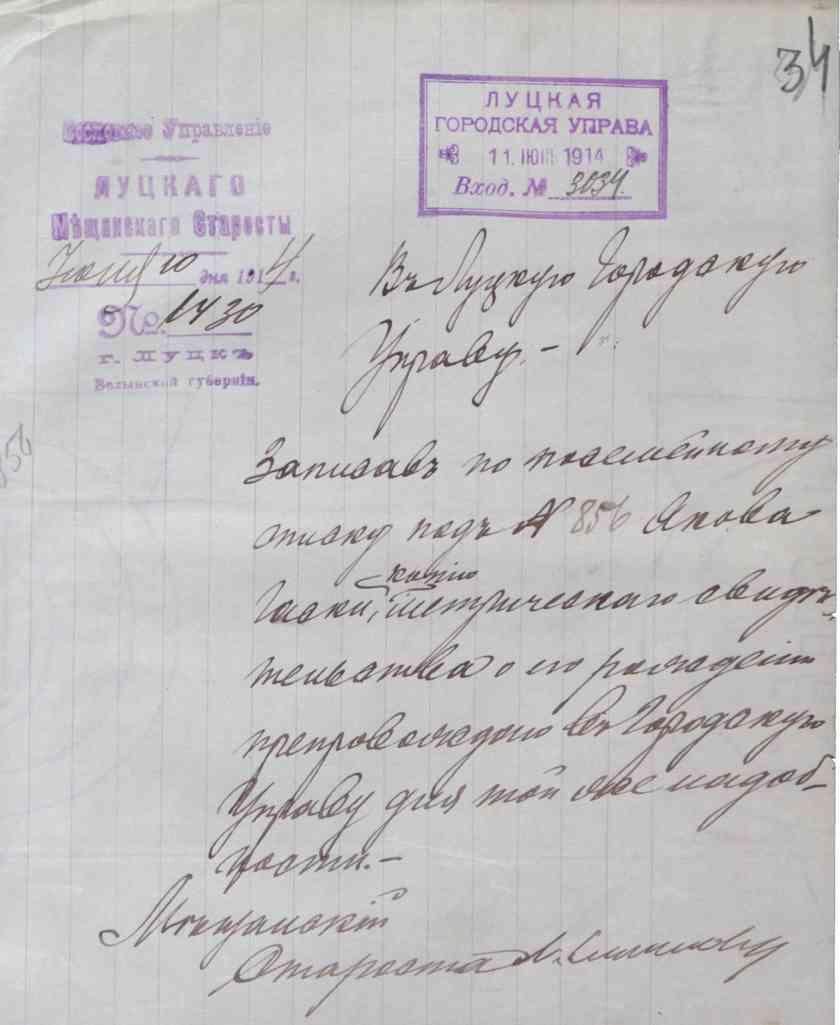 34
Сословное Управленіе
ЛУЦКАГО
Мѣщанскаго Старосты
Іюня 10 дня 1914 г.
№ 1430
г. ЛУЦКЪ
Волынской губерніи.
ЛУЦКАЯ
ГОРОДСКАЯ УПРАВА
11. ІЮН 1914
Вход. № 3034.
Въ Луцкую Городскую
Управу.-
856
Записавъ по посемейному
списку подъ № 856 Якова
Гаски, копію метрическаго свидѣ-
тельства о его рожденіи
препровождаю въ Городскую
Управу для той же надоб-
ности.-
Мѣщанскій
Староста